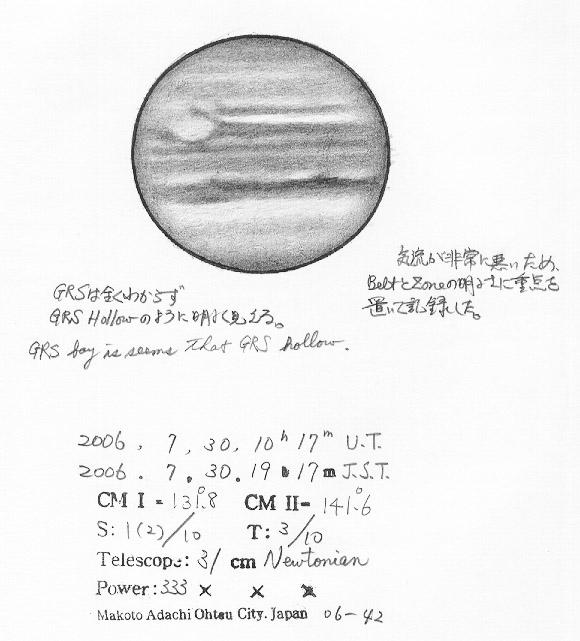 気流が非常に悪いため、
BeltとZoneの明るさに重点を
置いて記録した。
GRSは全くわからず
GRS Hollowのように明るく見える。
GRS bay is seems that GRS hollow.
2006. 7, 30, 10h 17m U.T.
2006. 7. 30. 19h 17m J.S.T.
CM I = 131.°8 CM II= 141.°6
S: 1(2)/10 T: 3/10
Telescope: 31 cm Newtonian
Power: 333 × × ×
Makoto Adachi Ohtsu City. Japan 06-42